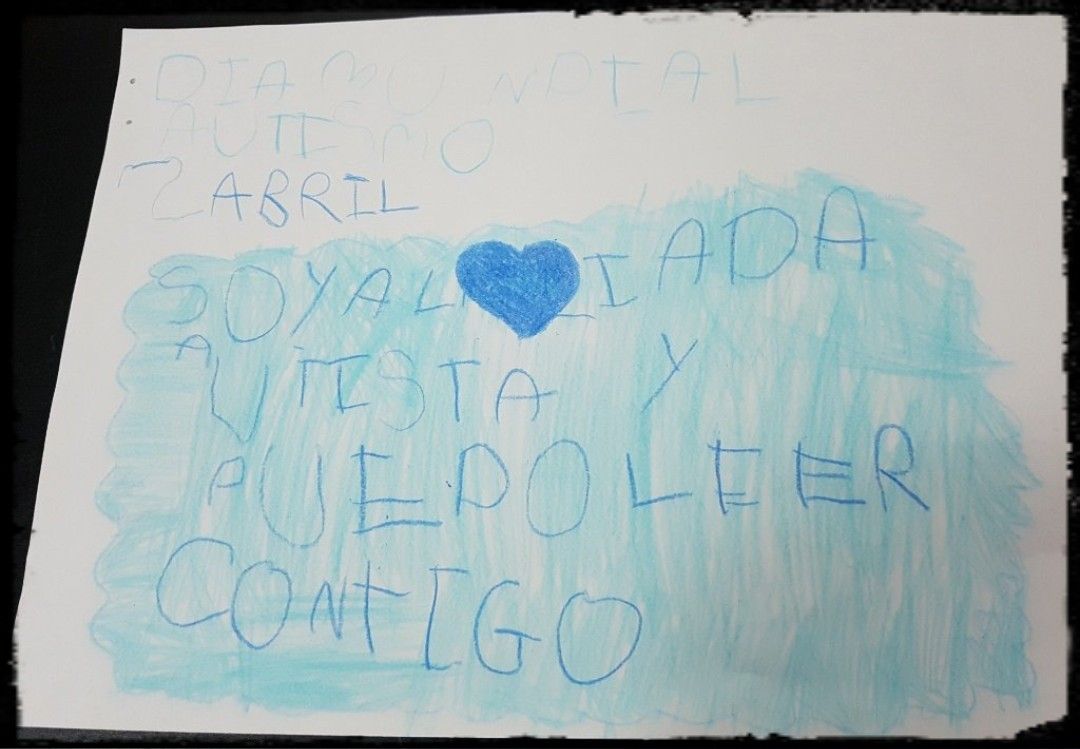 DIA MUNDIAL
AUTISMO
2 ABRIL
SOY ALIADA
AUTISTA Y
PUEDO LEER
CONTIGO